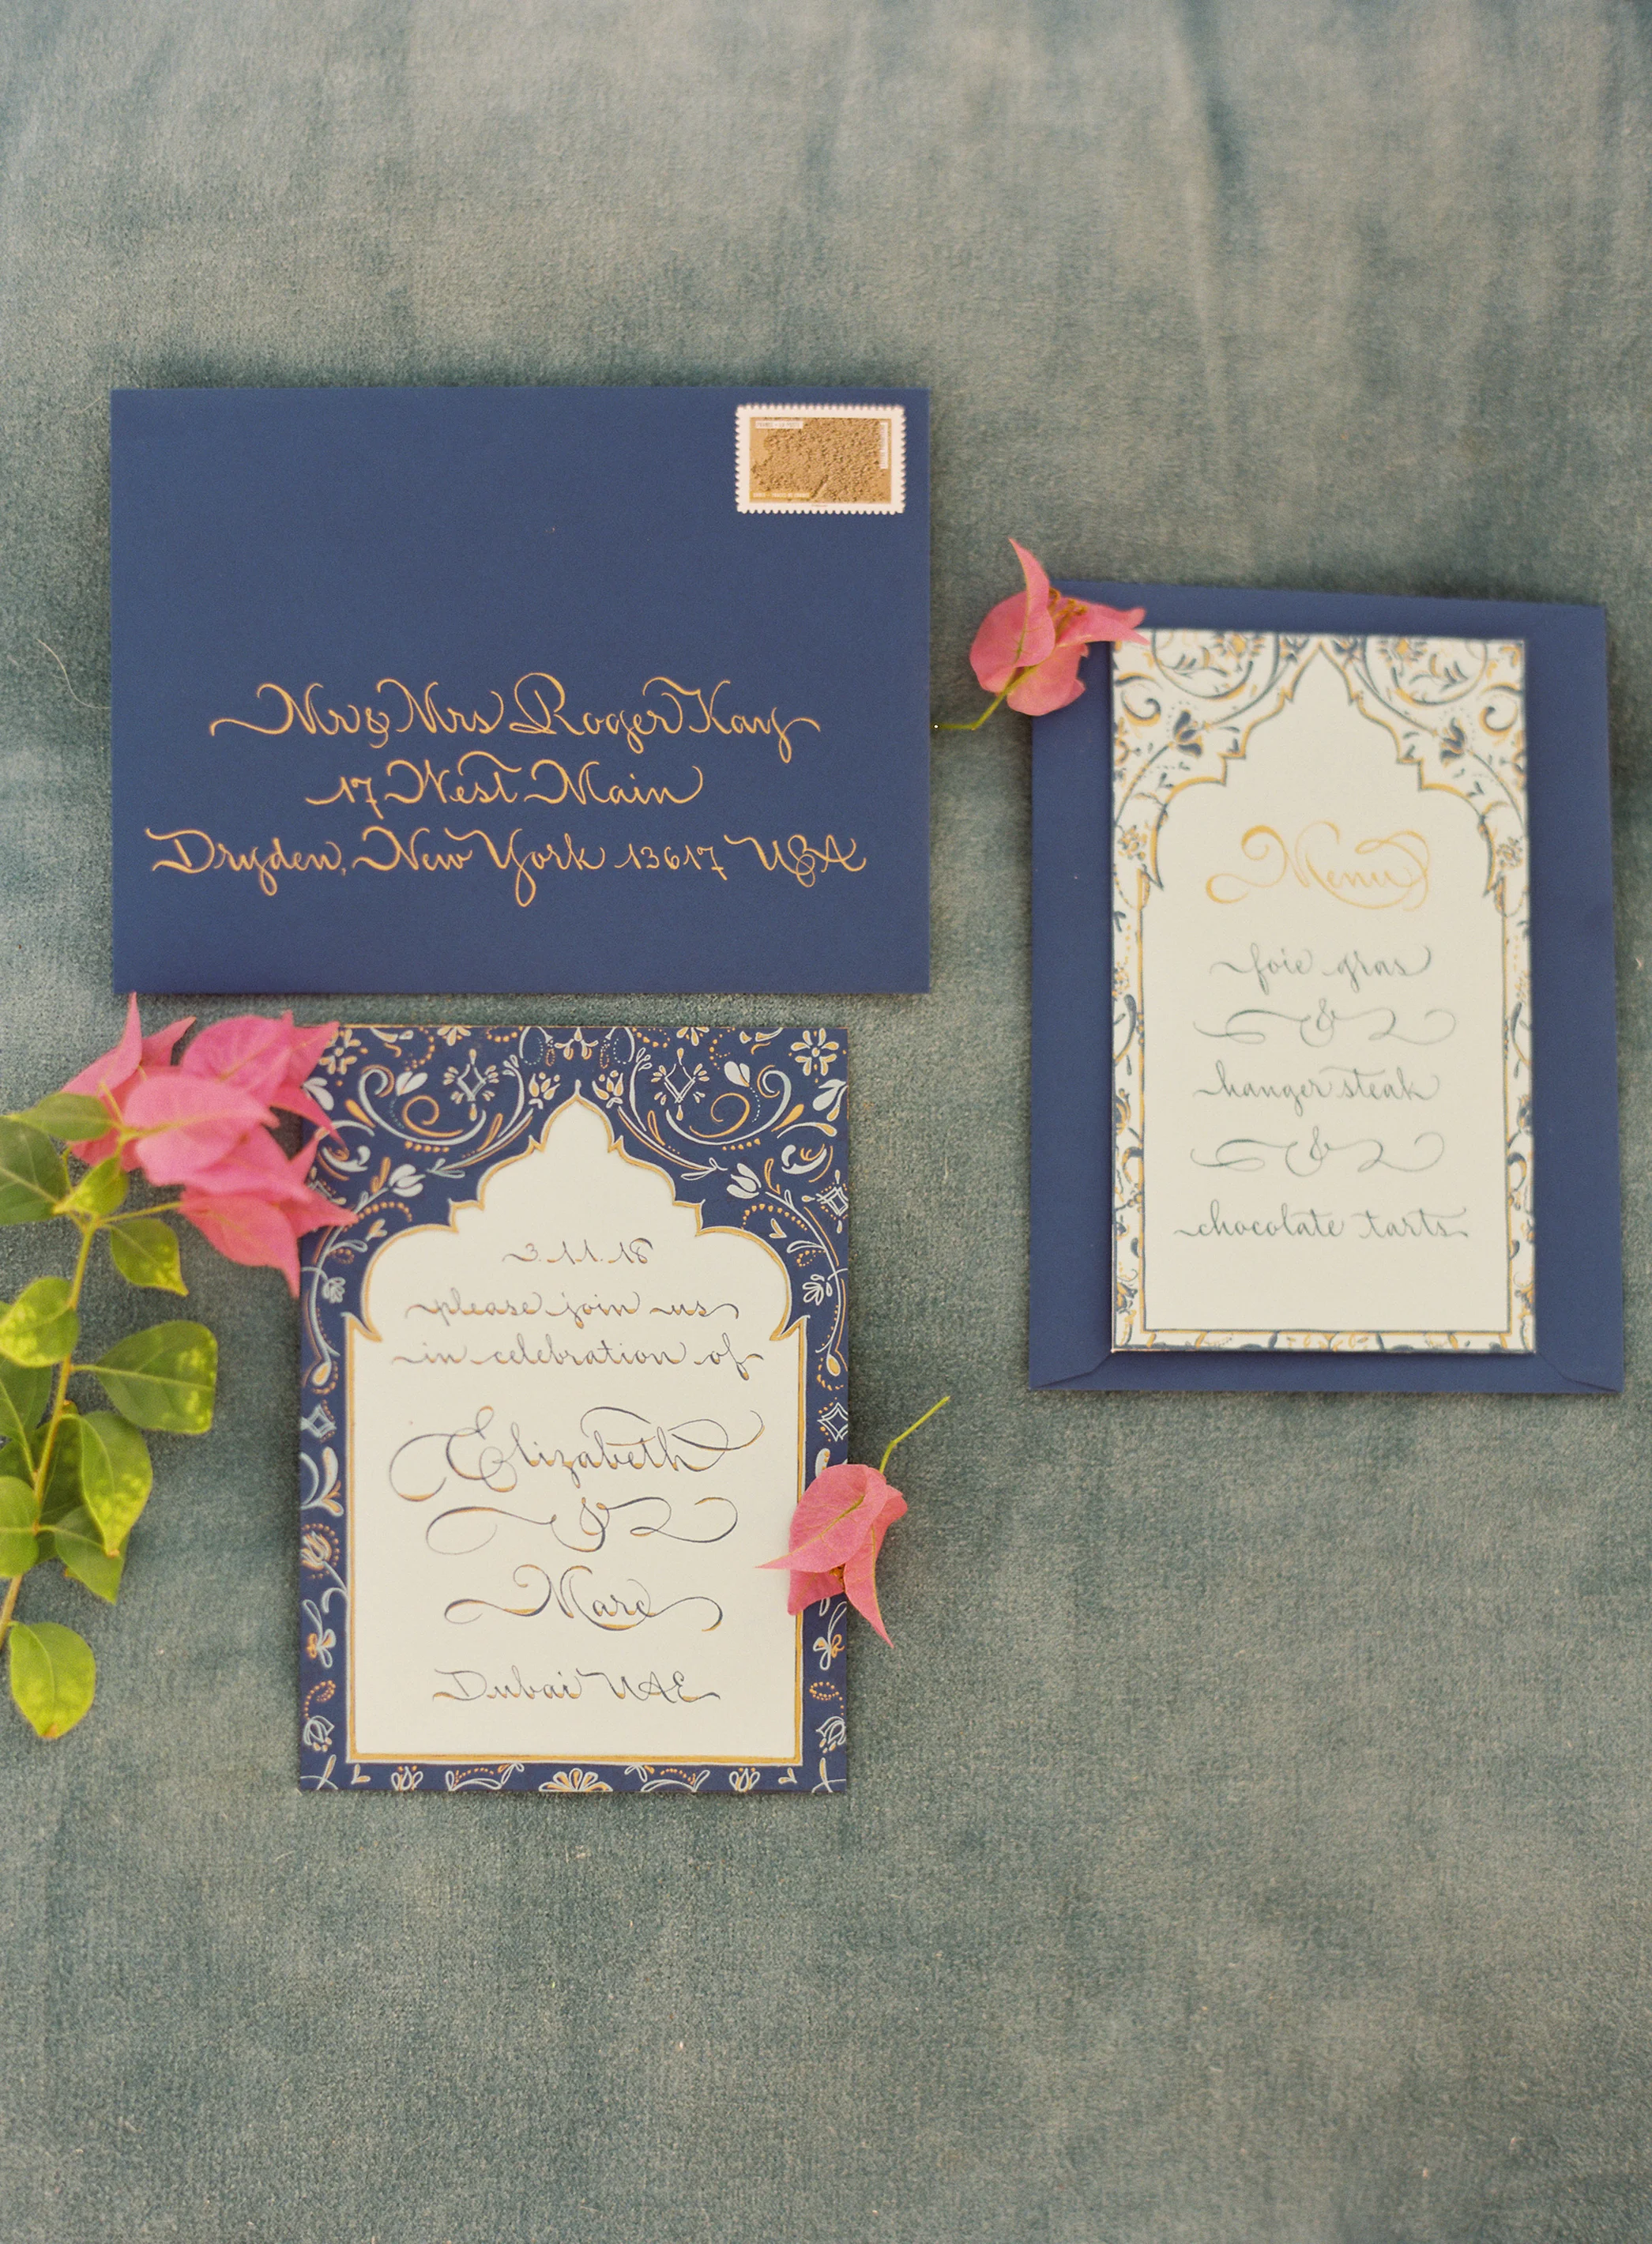 FRANCE - LA POSTE
Mr & Mrs Roger Kay
17 West Main
Dryden, New York 13617 USA
3.11.18
please join us
in celebration of
Elizabeth
&
Marc
Dubai UAE
Menu
foie gras
&
hanger steak
&
chocolate tarts